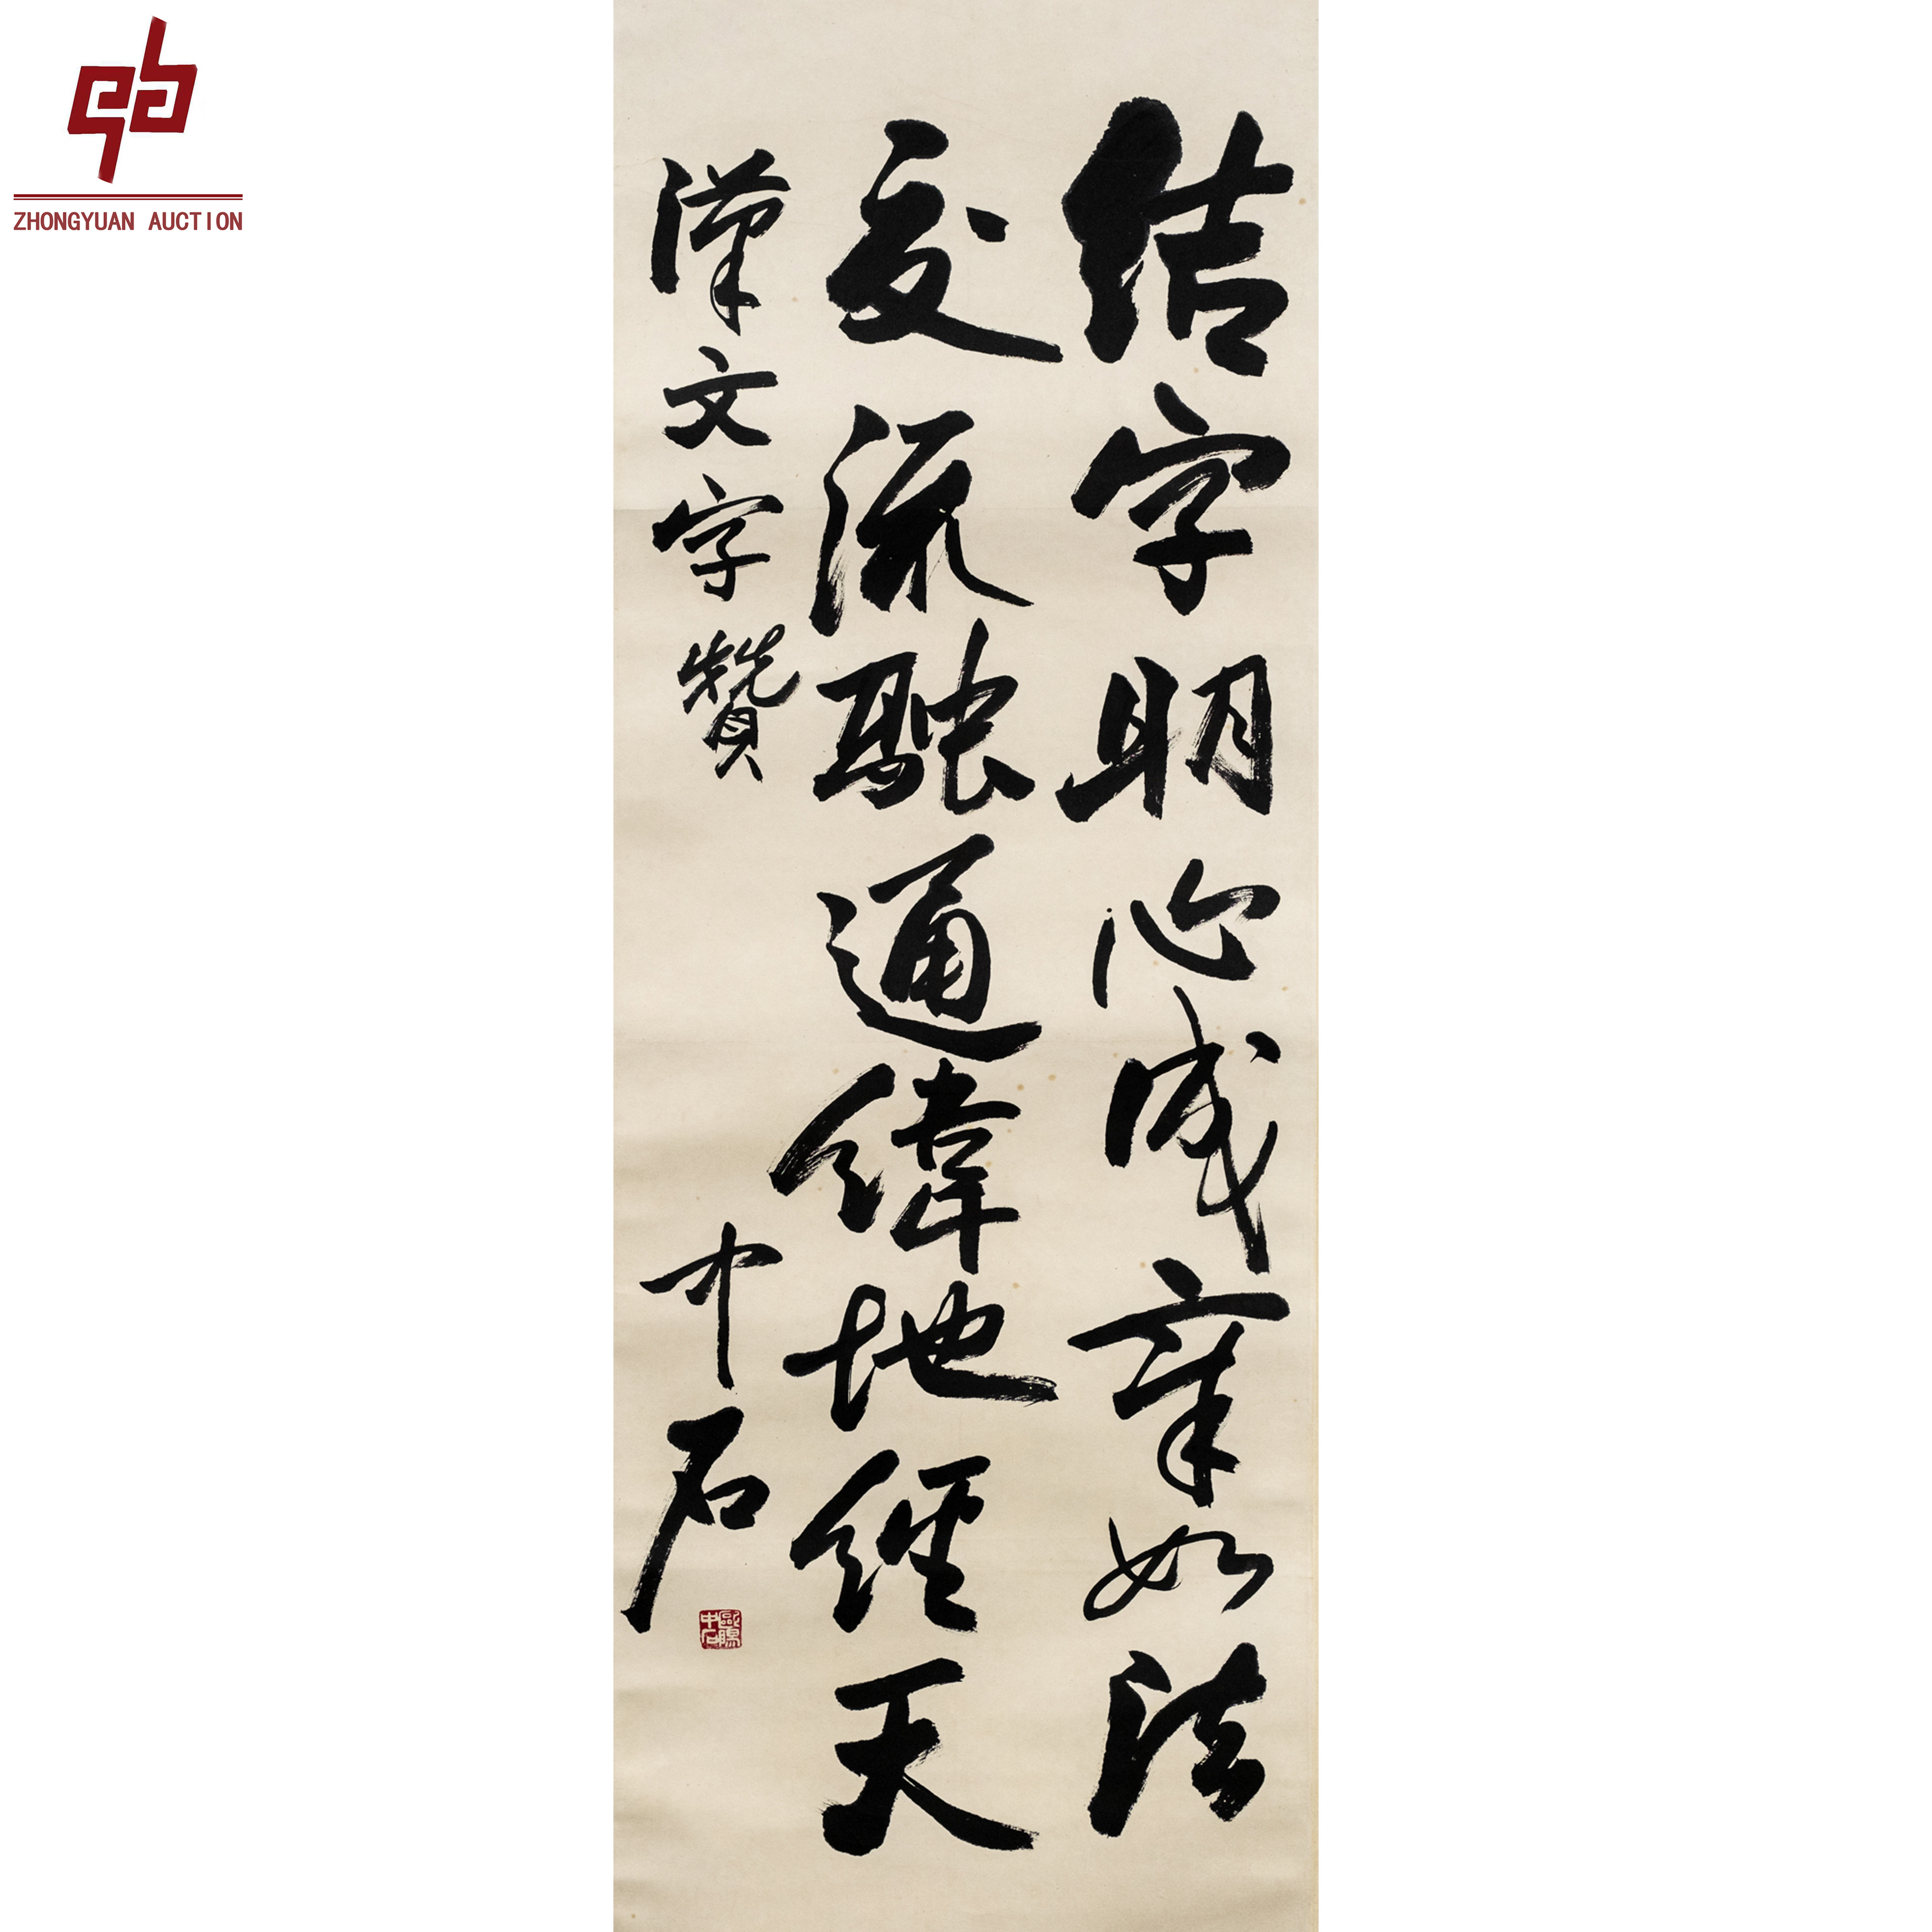 ZHONGYUAN AUCTION
结字明心成章如法
交流融通緯地經天
漢文字贊
中石
歐陽中石